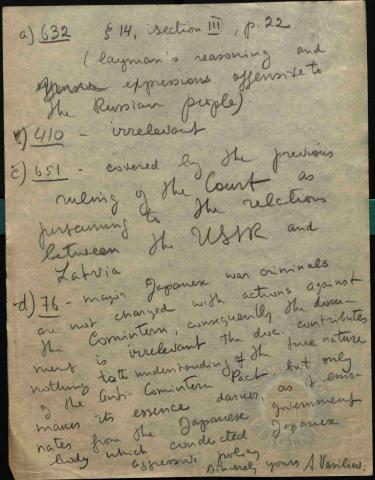 a) 632 § 14, section III, p. 22
(layman's reasoning and
expressions offensive to
the Russian people)
b) 410 - irrelevant
c) 651 - covered by the previous
ruling of the Court as
pertaining to the relations
between the USSR and
Latvia
d) 76 - major Japanese war criminals
are not charged with actions against
the Comintern, consequently the docu-
ment is irrelevant the doc. contributes
nothing to the understanding of the true nature
of the Anti-Comintern Pact, but only
makes its essence darker, as it ema-
nates from the Japanese government
body which conducted Japanese
aggressive policy
Sincerely yours A. Vasiliev.